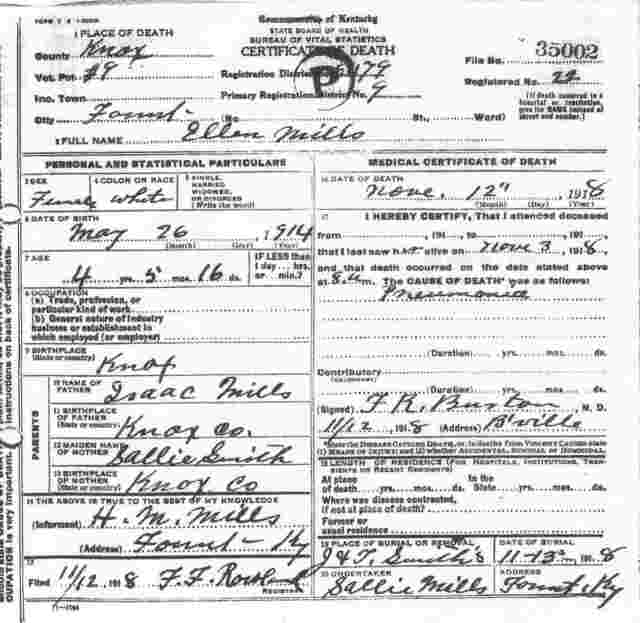 Commonwealth of Kentucky
STATE BOARD OF HEALTH
BUREAU OF VITAL STATISTICS
CERTIFICATE OF DEATH
1 PLACE OF DEATH
County Knox
Vot. Pct. #9
Registration District No. 479
File No. 35002
Inc. Town
Primary Registration District No. 9
Registered No. 22
City Fount
(No. St., Ward)
(If death occurred in a hospital or institution, give its NAME instead of street and number.)
2 FULL NAME Ellen Mills
PERSONAL AND STATISTICAL PARTICULARS
3 SEX Female
4 COLOR OR RACE White
5 SINGLE, MARRIED, WIDOWED, OR DIVORCED (Write the word)
6 DATE OF BIRTH
May 26, 1914
(Month) (Day) (Year)
7 AGE
4 yrs. 5 mos. 16 ds.
IF LESS than 1 day... hrs. or min.?
8 OCCUPATION
(a) Trade, profession, or
particular kind of work
(b) General nature of industry
business or establishment in
which employed (or employer)
9 BIRTHPLACE
(State or country) Knox
PARENTS
10 NAME OF FATHER Isaac Mills
11 BIRTHPLACE OF FATHER
(State or country) Knox Co.
12 MAIDEN NAME OF MOTHER Sallie Smith
13 BIRTHPLACE OF MOTHER
(State or country) Knox Co
14 THE ABOVE IS TRUE TO THE BEST OF MY KNOWLEDGE
(Informant) H. M. Mills
(Address) Fount Ky
15
Filed 11/12 1918 F. F.
REGISTRAR
MEDICAL CERTIFICATE OF DEATH
16 DATE OF DEATH
Nove. 12", 1918
(Month) (Day) (Year)
17 I HEREBY CERTIFY, That I attended deceased
from , 191 , to , 191 ,
that I last saw her alive on Nove 3, 1918,
and that death occurred on the date stated above
at m. The CAUSE OF DEATH* was as follows:
Pneumonia
(Duration) yrs. mos. ds.
Contributory
(SECONDARY)
(Duration) yrs. mos. ds.
(Signed) F. R. Burton, M. D.
11/12, 1918 (Address) B'ville
*State the DISEASE CAUSING DEATH, or, in deaths from VIOLENT CAUSES state (1) MEANS OF INJURY; and (2) whether ACCIDENTAL, SUICIDAL, or HOMICIDAL.
18 LENGTH OF RESIDENCE (FOR HOSPITALS, INSTITUTIONS, TRANSIENTS OR RECENT RESIDENTS)
At place of death yrs. mos. ds.
In the State yrs. mos. ds.
Where was disease contracted,
if not at place of death?
Former or
usual residence
19 PLACE OF BURIAL OR REMOVAL
J & T Smith's
DATE OF BURIAL
11-13, 1918
20 UNDERTAKER
Sallie Mills
ADDRESS
Fount Ky